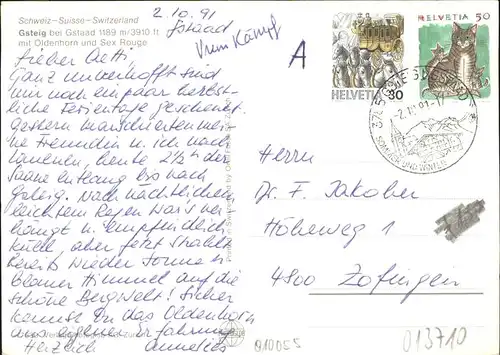 Schweiz-Suisse-Switzerland
Gsteig bei Gstaad 1189 m/3910 ft
mit Oldenhorn und Sex Rouge
2.10.91
Gstaad
A
HELVETIA 80
HELVETIA 50
Lieber Oetti,
Ganz unverhofft sind
mir noch ein paar herbst-
liche Ferientage geschenkt.
Gestern marschierten mei-
ne Freundin u. ich nach
Lauenen, heute 2½ Std der
Saane entlang bis nach
Gsteig. Nach nächtlichem
leichtem Regen war's ver-
hängt u. empfindlich
kühl, aber jetzt strahlt
bereits wieder Sonne u.
blauer Himmel auf die
schöne Bergwelt! Sicher
kennst Du das Oldenhorn
aus eigener Erfahrung
Herzlich Annelies
-2.10.91-17
SOMMER UND WINTER
Herrn
Dr. F. Jakober
Höheweg 1
4800 Zofingen
010055
013710